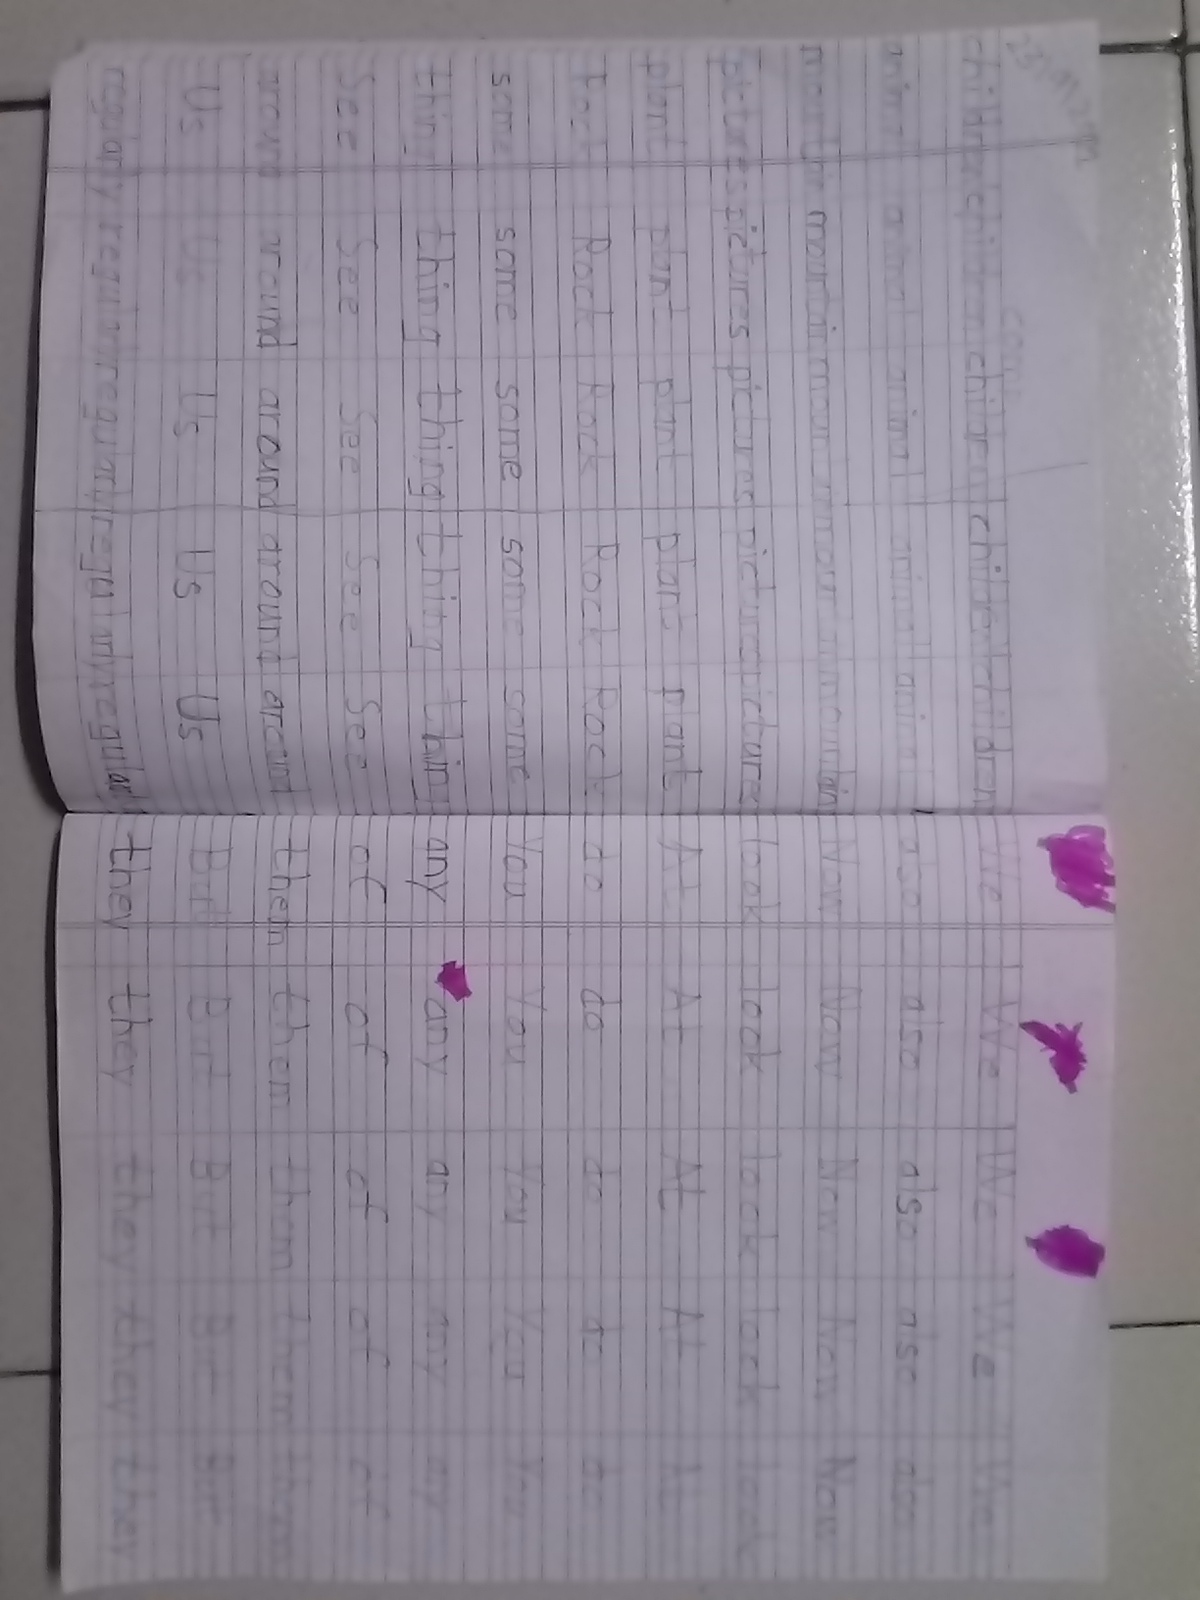 children children children children children
animal animal animal animal animal
mountain mountain mountain mountain mountain
pictures pictures pictures pictures pictures
plant plant plant plant plant
Rock Rock Rock Rock Rock
some some some some some
thing thing thing thing thing
See See See See See
around around around around around
Us Us Us Us Us
We We We We
also also also also also
Now Now Now Now Now
look look look look look
At At At At At
do do do do do
You You You You You
any any any any any
of of of of of
them them them them them
But But But But But
they they they they they